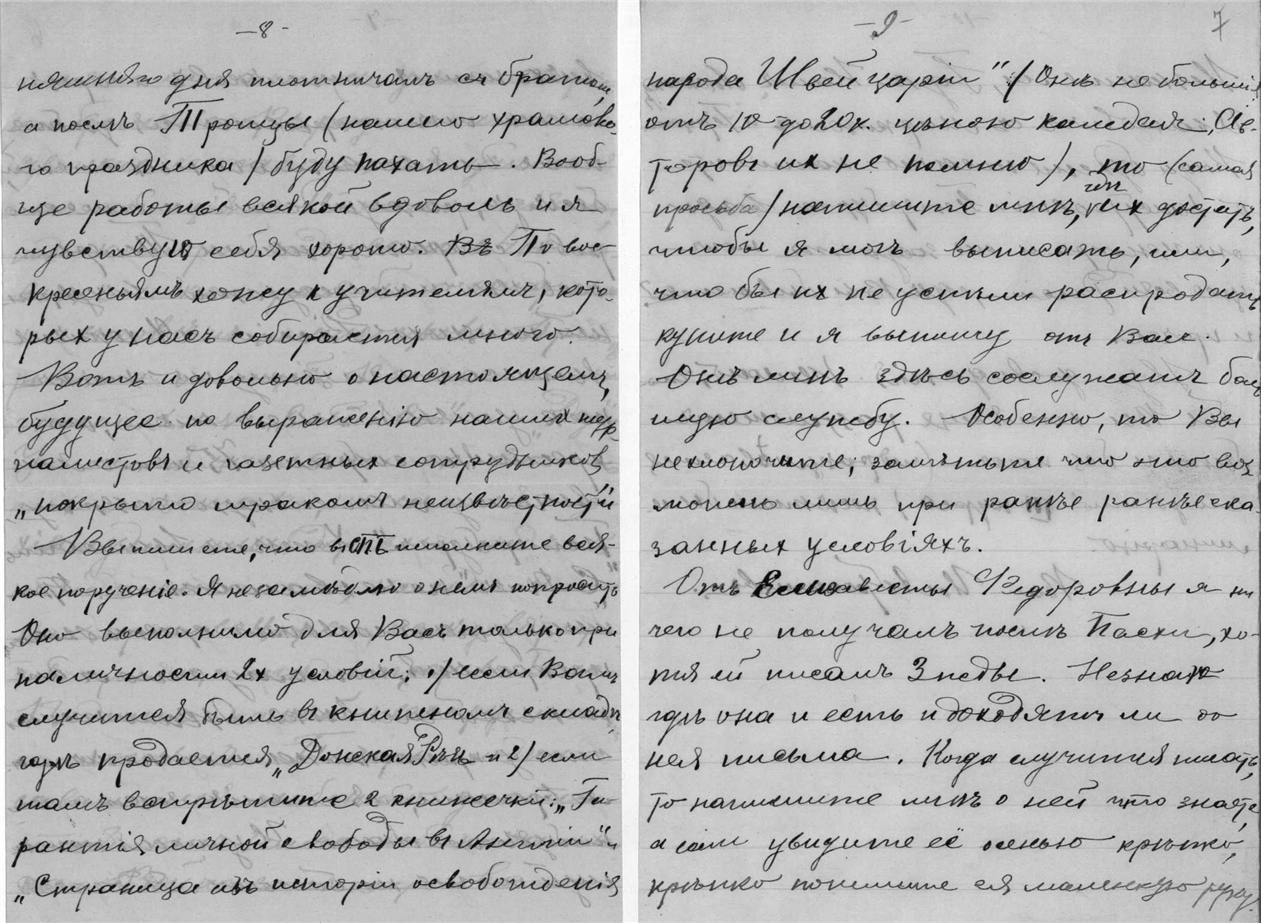 -8-
няшняго дня плотничалъ съ братом,
а послѣ Троицы (нашего храмово-
го праздника) буду пахать. Вооб-
ще работы всякой вдоволь и я
чувствую себя хорошо. Въ По вос-
кресеньямъ хожу к учителям, кото-
рых у насъ собирается много.
Вотъ и довольно о настоящемъ,
будущее по выражению наших жур
налистовъ и газетных сотрудников,
„покрыто мракомъ неизвѣстности"
Вы пишете, что вы исполните вся-
кое порученіе. Я незамедлю о нем попросить
Оно выполнимо для Васъ только при
наличности 2х условій: 1) если Вамъ
случится быть въ книжномъ складѣ
гдѣ продается „Донская Рѣчь и 2) если
тамъ встрѣтите 2 книжечки: „Га-
рантія личной свободы въ Англіи" и
„Страница изъ исторіи освобожденія
-9-
7
народа Швейцаріи" (Онѣ небольшія
отъ 10 до 20 к. цѣною каждая; Ав-
торовъ их не помню), то (самая
просьба) напишите мнѣ, гдѣ их достать,
чтобы я могъ выписать, или,
что бы их не успѣли распродать
купите и я выпишу отъ Вас.
Онѣ мнѣ здѣсь сослужатъ боль
шую службу. Особенно, то Вы
нехлопочите; замѣтьте что это воз
можно лишь при ранѣе ранѣе ска-
занных условіяхъ.
Отъ Елисаветы Федоровны я ни
чего не получалъ послѣ Пасхи, хо-
тя ей писалъ 3 жды. Незнаю
гдѣ она и есть и доходятъ ли до
нея письма. Когда случится писать,
то напишите мнѣ о ней что знаете,
а если увидите её осенью крѣпко,
крѣпко пожмите ея маленькую руку.